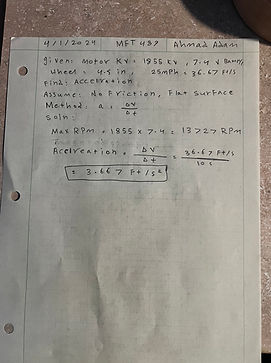 4/1/2024 MFT 437 Ahmad Adam
Given: Motor KV = 1855 KV, 7.4 V Battery
Wheel = 4.5 in, 25mph = 36.67 Ft/s
Find: Acceleration
Assume: No Friction, Flat surface
Method: a = ΔV/Δt
Soln:
Max RPM = 1855 x 7.4 = 13727 RPM
Acelreation = ΔV/Δt = 36.67 Ft/s / 10 s
= 3.667 Ft/s²